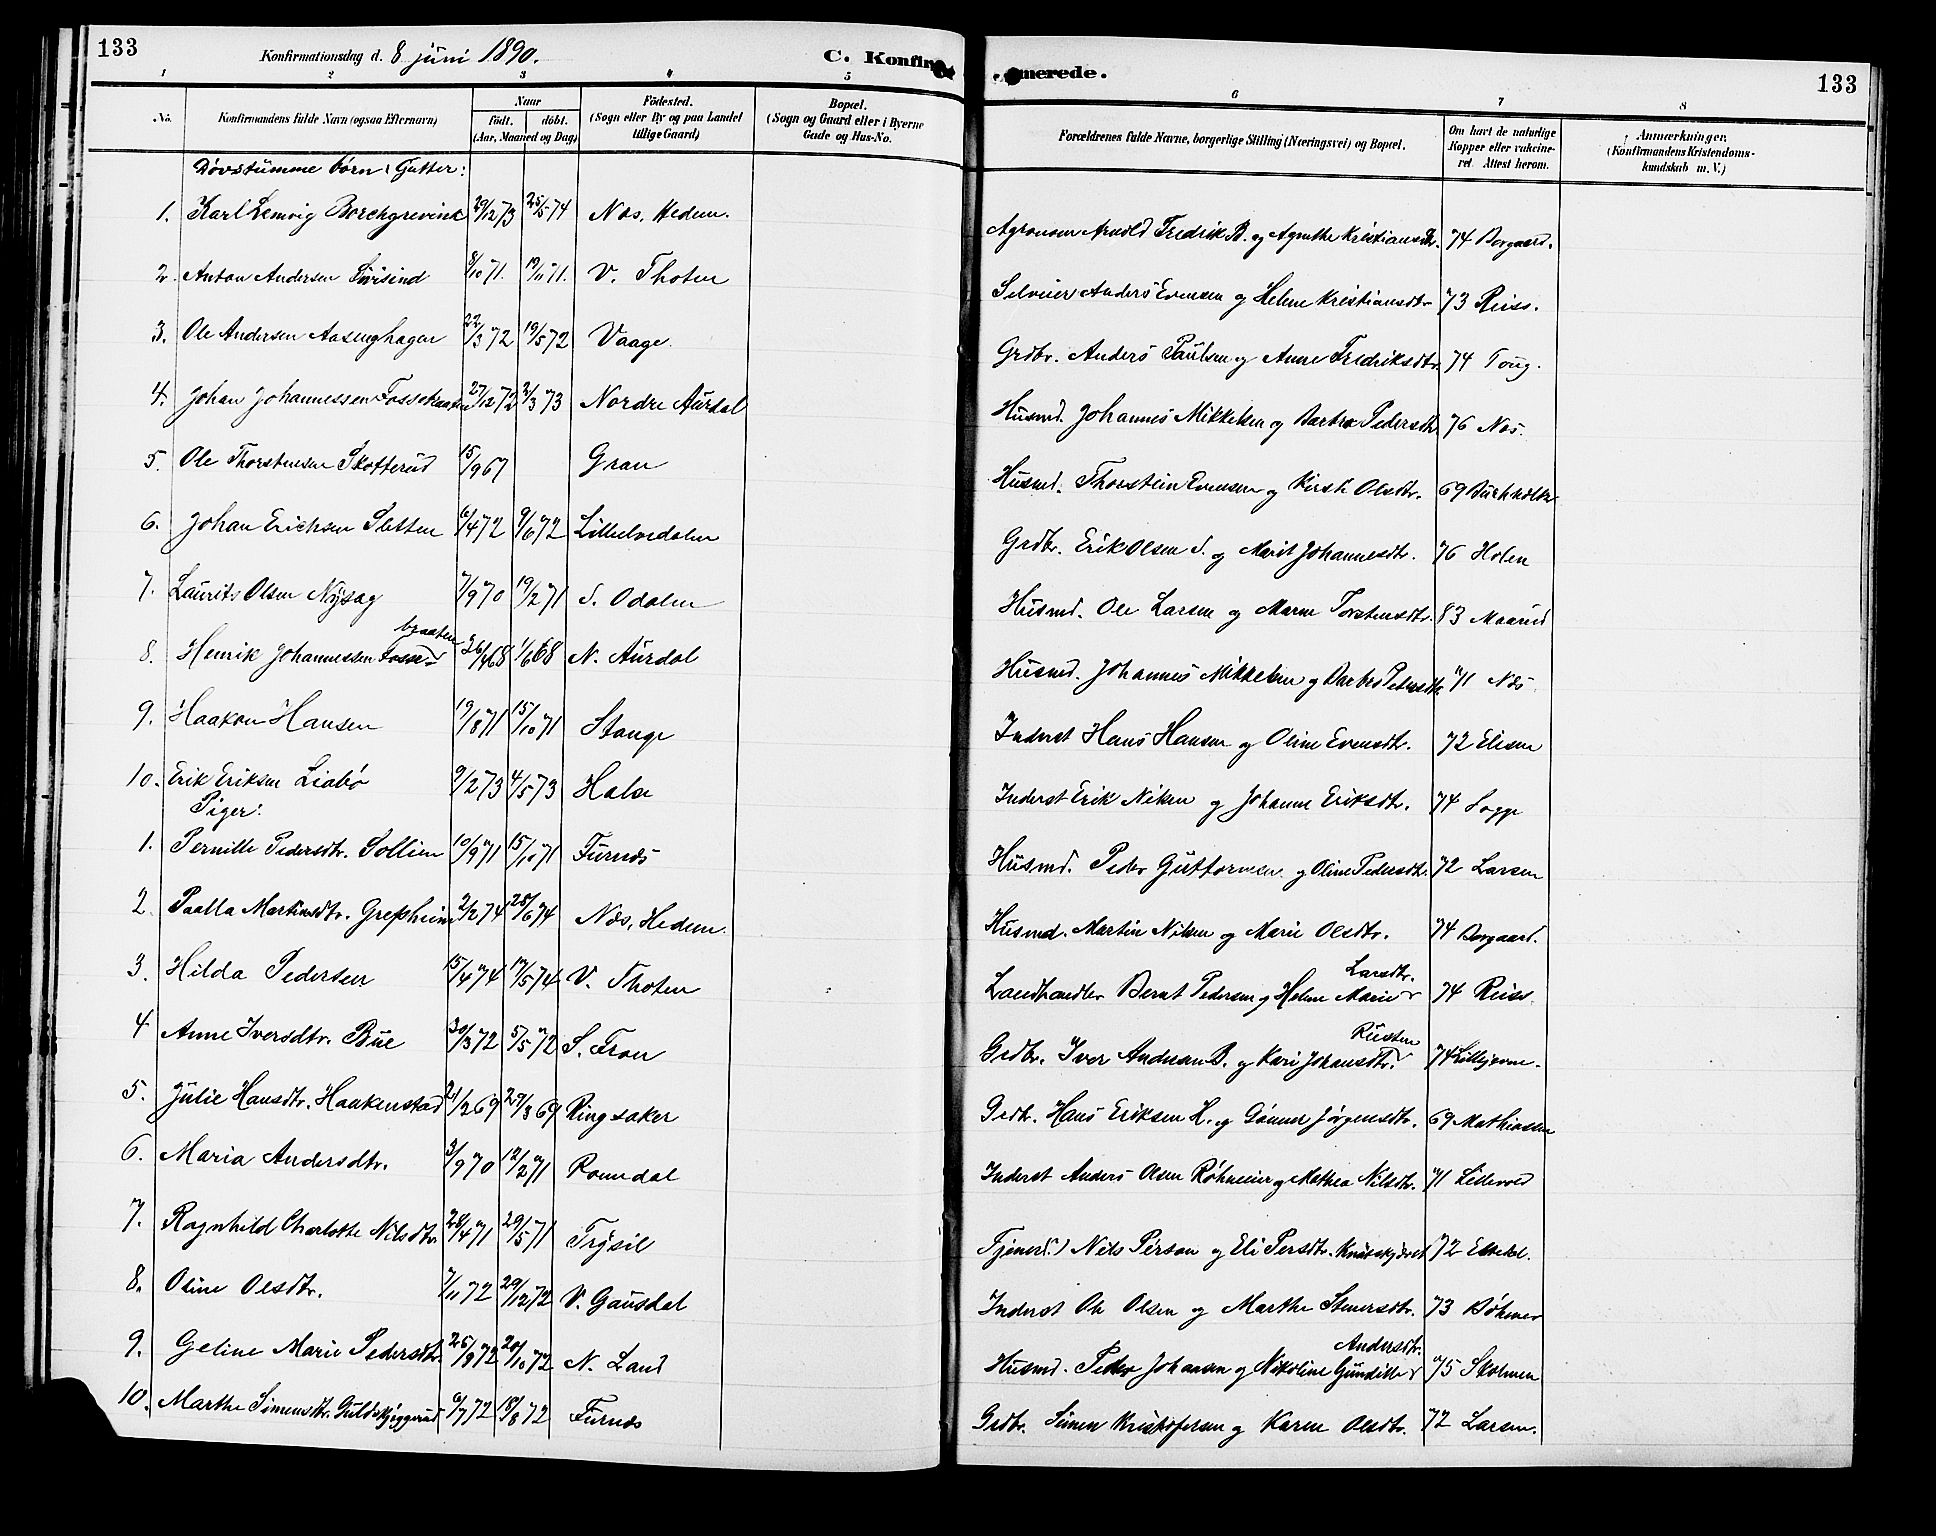 133
Konfirmationsdag d. 8 juni 1890.
C. Konfir
merede.
133
1 2 3 4 5 6 7 8
No.
Konfirmandens fulde Navn (ogsaa Efternavn)
Naar
födt. döbt.
(Aar, Maaned og Dag)
Födested.
(Sogn eller By og paa Landet
tillige Gaard)
Bopæl.
(Sogn og Gaard eller i Byerne
Gade og Hus-No.
Forældrenes fulde Navne, borgerlige Stilling (Næringsvei) og Bopæl.
Om havt de naturlige
Kopper eller vakcine-
ret. Attest herom.
Anmærkninger,
(Konfirmandens Kristendoms-
kundskab m. V.)
Døvstumme børn: Gutter:
1. Karl Lemvig Borchgrevink 29/12 73 25/5 74 Næs, Hedem. Agronom Arnold Fredrik B. og Agnethe Kristiansdtr. 74 Borgaard.
2. Anton Andersen 8/10 71. 19/11 71. V. Thoten Anders Evensen og Helene Kristiansdtr 73 Reiss.
3. Ole Andersen Aasenghagen 22/3 72 19/5 72 Vaage. Grdbr. Anders Paulsen og Anne Fredriksdtr. 74 Toug.
4. Johan Johannessen Fossebraaten 27/12 72 2/3 73 Nordre Aurdal Husmd. Johannes Mikkelsen og Barbro Pedersdtr. 76 Næs.
5. Ole Thorstensen Skofterud 15/9 67 Gran Husmd. Thorstein Evensen og Kirsti Olsdtr. 69 Buchholdtz
6. Johan Erichsen Sletten 6/4 72 9/6 72 Lilleelvedalen Grdbr. Erik Olsen S. og Marit Johannesdtr. 76 Holen
7. Laurits Olsen Nysag 7/9 70 19/2 71 S. Odalen Husmd. Ole Larsen og Maren Torstensdtr. 83 Maarud
braaten
8. Henrik Johannessen Fosse 26/4 68 1/6 68 N. Aurdal Husmd. Johannes Mikkelsen og Barbro Pedersdtr 71 Næs.
9. Haakon Hansen 19/8 71 15/10 71 Stange Inderst Hans Hansen og Oline Evensdtr. 72 Elisen
10. Erik Eriksen Liabø 9/2 73 4/5 73 Halse Inderst Erik Nilsen og Johanne Eriksdtr. 74 Sopp
Piger:
1. Pernille Pedersdtr. Sollien 10/9 71 15/10 71 Furnæs Husmd. Peder Guttormsen og Oline Pedersdtr. 72 Larsen
2. Paalla Martinsdtr. Grefsheim 2/2 74 28/6 74 Næs, Hedem. Husmd. Martin Nilsen og Marie Olsdtr. 74 Borgaard.
Larsdtr.
3. Hilda Pedersen 15/4 74 17/5 74 V. Thoten Landhandler Bernt Pedersen og Helene Marie 74 Reiss.
Rusten
4 Anne Iversdtr. Bue 30/3 72 5/5 72 S. Fron Grdbr. Iver Andersen B. og Kari Johansdtr. 74
5. Julie Hansdtr. Haakenstad 21/2 69 29/3 69 Ringsaker Grdbr. Hans Eriksen H. og Gunnor Jörgensdtr. 69 Mathiassen
6. Maria Andersdtr. 3/9 70 12/2 71 Romedal Inderst Anders Olsen og Mathea Nilsdtr. 71 Lillevold
7. Ragnhild Charlotte Nilsdtr 28/4 71 29/5 71 Trysil Nils Person og Eli Persdtr. 72
8. Oline Olsdtr. 7/11 72 29/12 72 V. Gausdal Inderst Ole Olsen og Marthe Stenersdtr. 73 Böhmer
Andersdtr.
9. Geline Marie Pedersdtr. 25/8 72 20/10 72 N. Land Husmd. Peder Johansen og Nikoline 75 Skolmen
10. Marthe Simensdtr. Guldskjeggerud 6/7 72 18/8 72 Furnæs Grdbr. Simen Kristofersen og Karen Olsdtr. 72 Larsen.